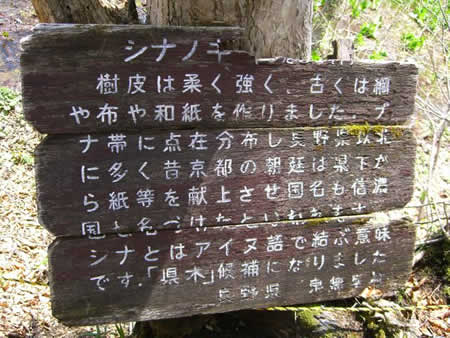 シナノキ
樹皮は柔く強く、古くは綱
や布や和紙を作りました。ブ
ナ帯に点在分布し長野県以北
に多く昔京都の朝廷は県下か
ら紙等を献上させ国名も信濃
国と名づけたといわれます
シナとはアイヌ語で結ぶ意味
です.「県木」候補になりました
長野県